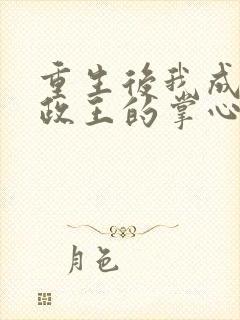 重生後我成
政王的掌心
月色